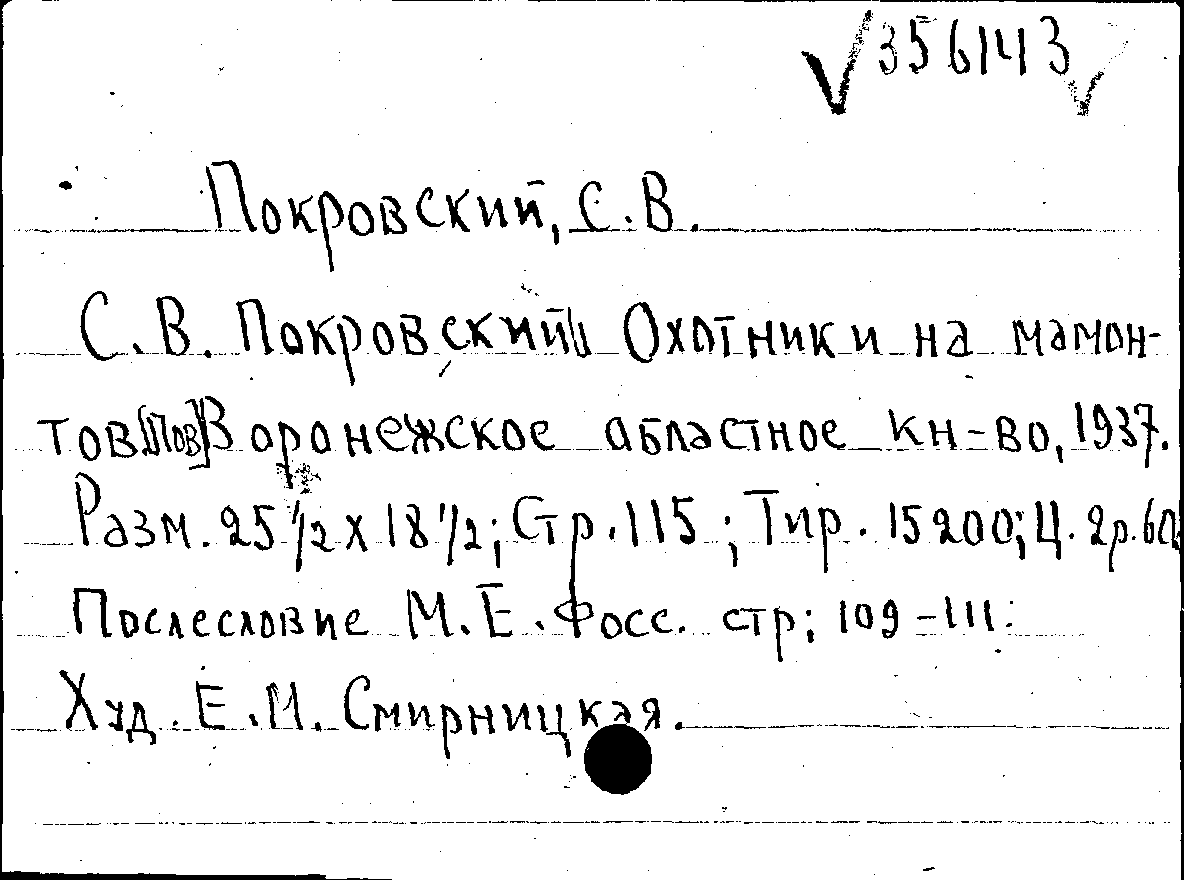 √356143√
Покровский, С.В.
С.В. Покровский Охотники на мамон-
тов [Пов] Воронежское областное кн-во, 1937.
Разм. 25 1/2 x 18 1/2; Стр. 115; Тир. 15200; Ц. 2р. 60
Послесловие М.Е. Фосс. стр; 109-111.
Худ. Е.М. Смирницкая.